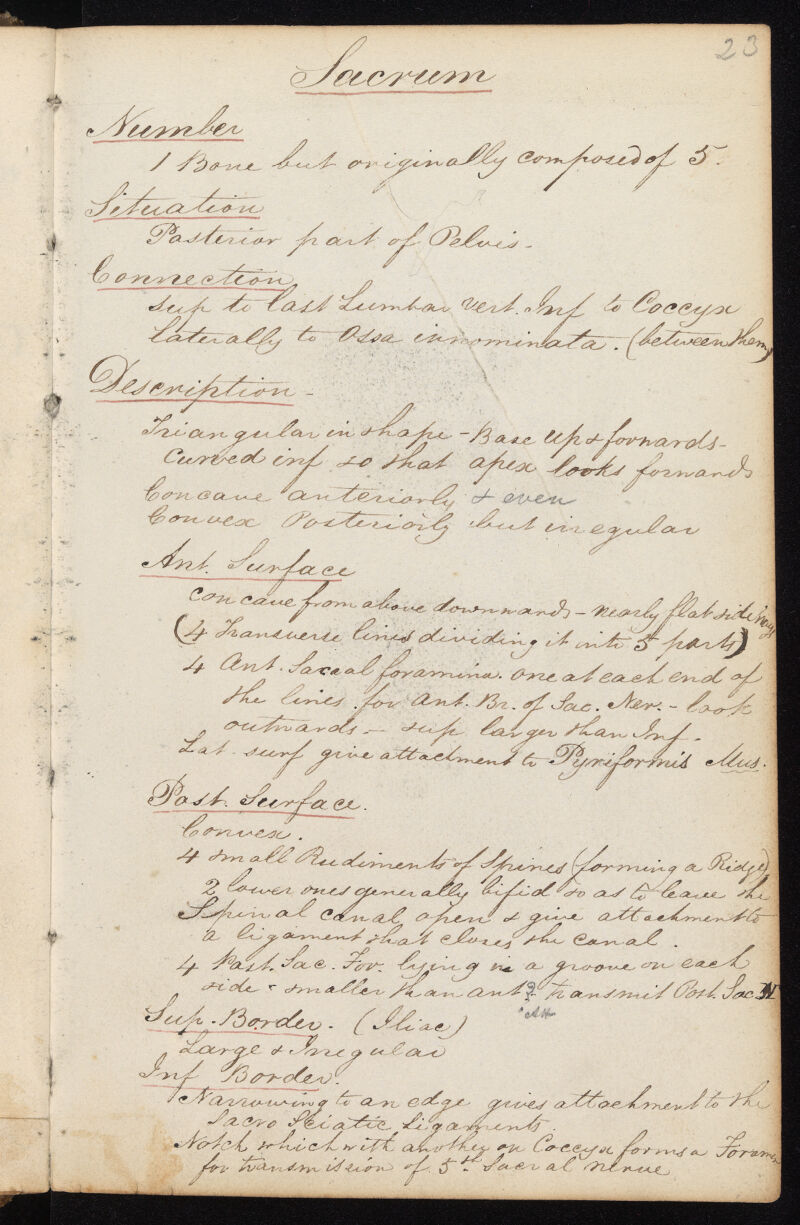 23
Sacrum
Number
1 Bone but originally composed of 5.
Situation
Posterior part of Pelvis.
Connection
Sup to last Lumbar Vert. Inf to Coccyx
Laterally to Ossa innominata. (between them)
Description -
Triangular in shape - Base up & forwards -
Curved inf so that apex looks forwards
Concave anteriorly & even
Convex Posteriorly but irregular
Ant. Surface
Concave from above downwards - nearly flat sideways
(4 Transverse lines dividing it into 5 parts)
4 Ant. Sacral foramina. one at each end of
the lines. for Ant. Br. of Sac. Ner. - look
outwards - sup larger than Inf.
Lat. surf give attachment to Pyriformis Mus.
Post. Surface.
Convex.
4 small Rudiments of Spines (forming a Ridge)
2 lower ones generally bifid so as to leave the
Spinal canal open & give attachment to
a ligament that closes the canal.
4 Post. Sac. For. lying in a groove on each
side & smaller than ant transmit Post. Sac. N
Sup. Border. (Iliac)
Large & Irregular
Inf Border.
Narrowing to an edge gives attachment to the
Sacro Sciatic Ligaments.
Notch which with another on Coccyx forms a Foramen
for transmission of 5th Sacral nerve